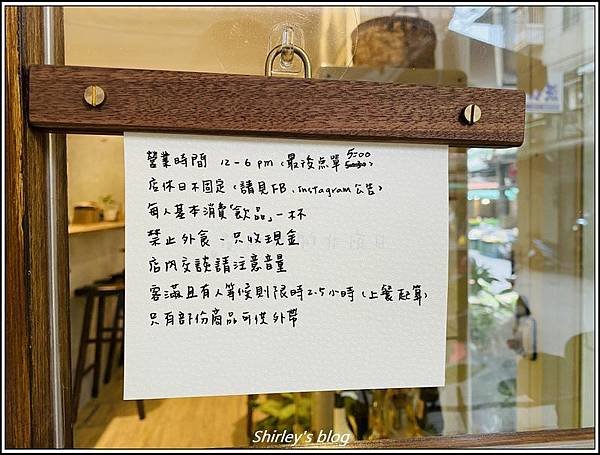 營業時間 12-6pm (最後点單 5:00
店休日不固定 (請見FB、instagram公告)
每人基本消費「飲品」一杯
禁止外食、只收現金
店內交談請注意音量
客滿且有人等候則限時2.5小時 (上餐起算)
只有部份商品可供外帶
Shirley's blog